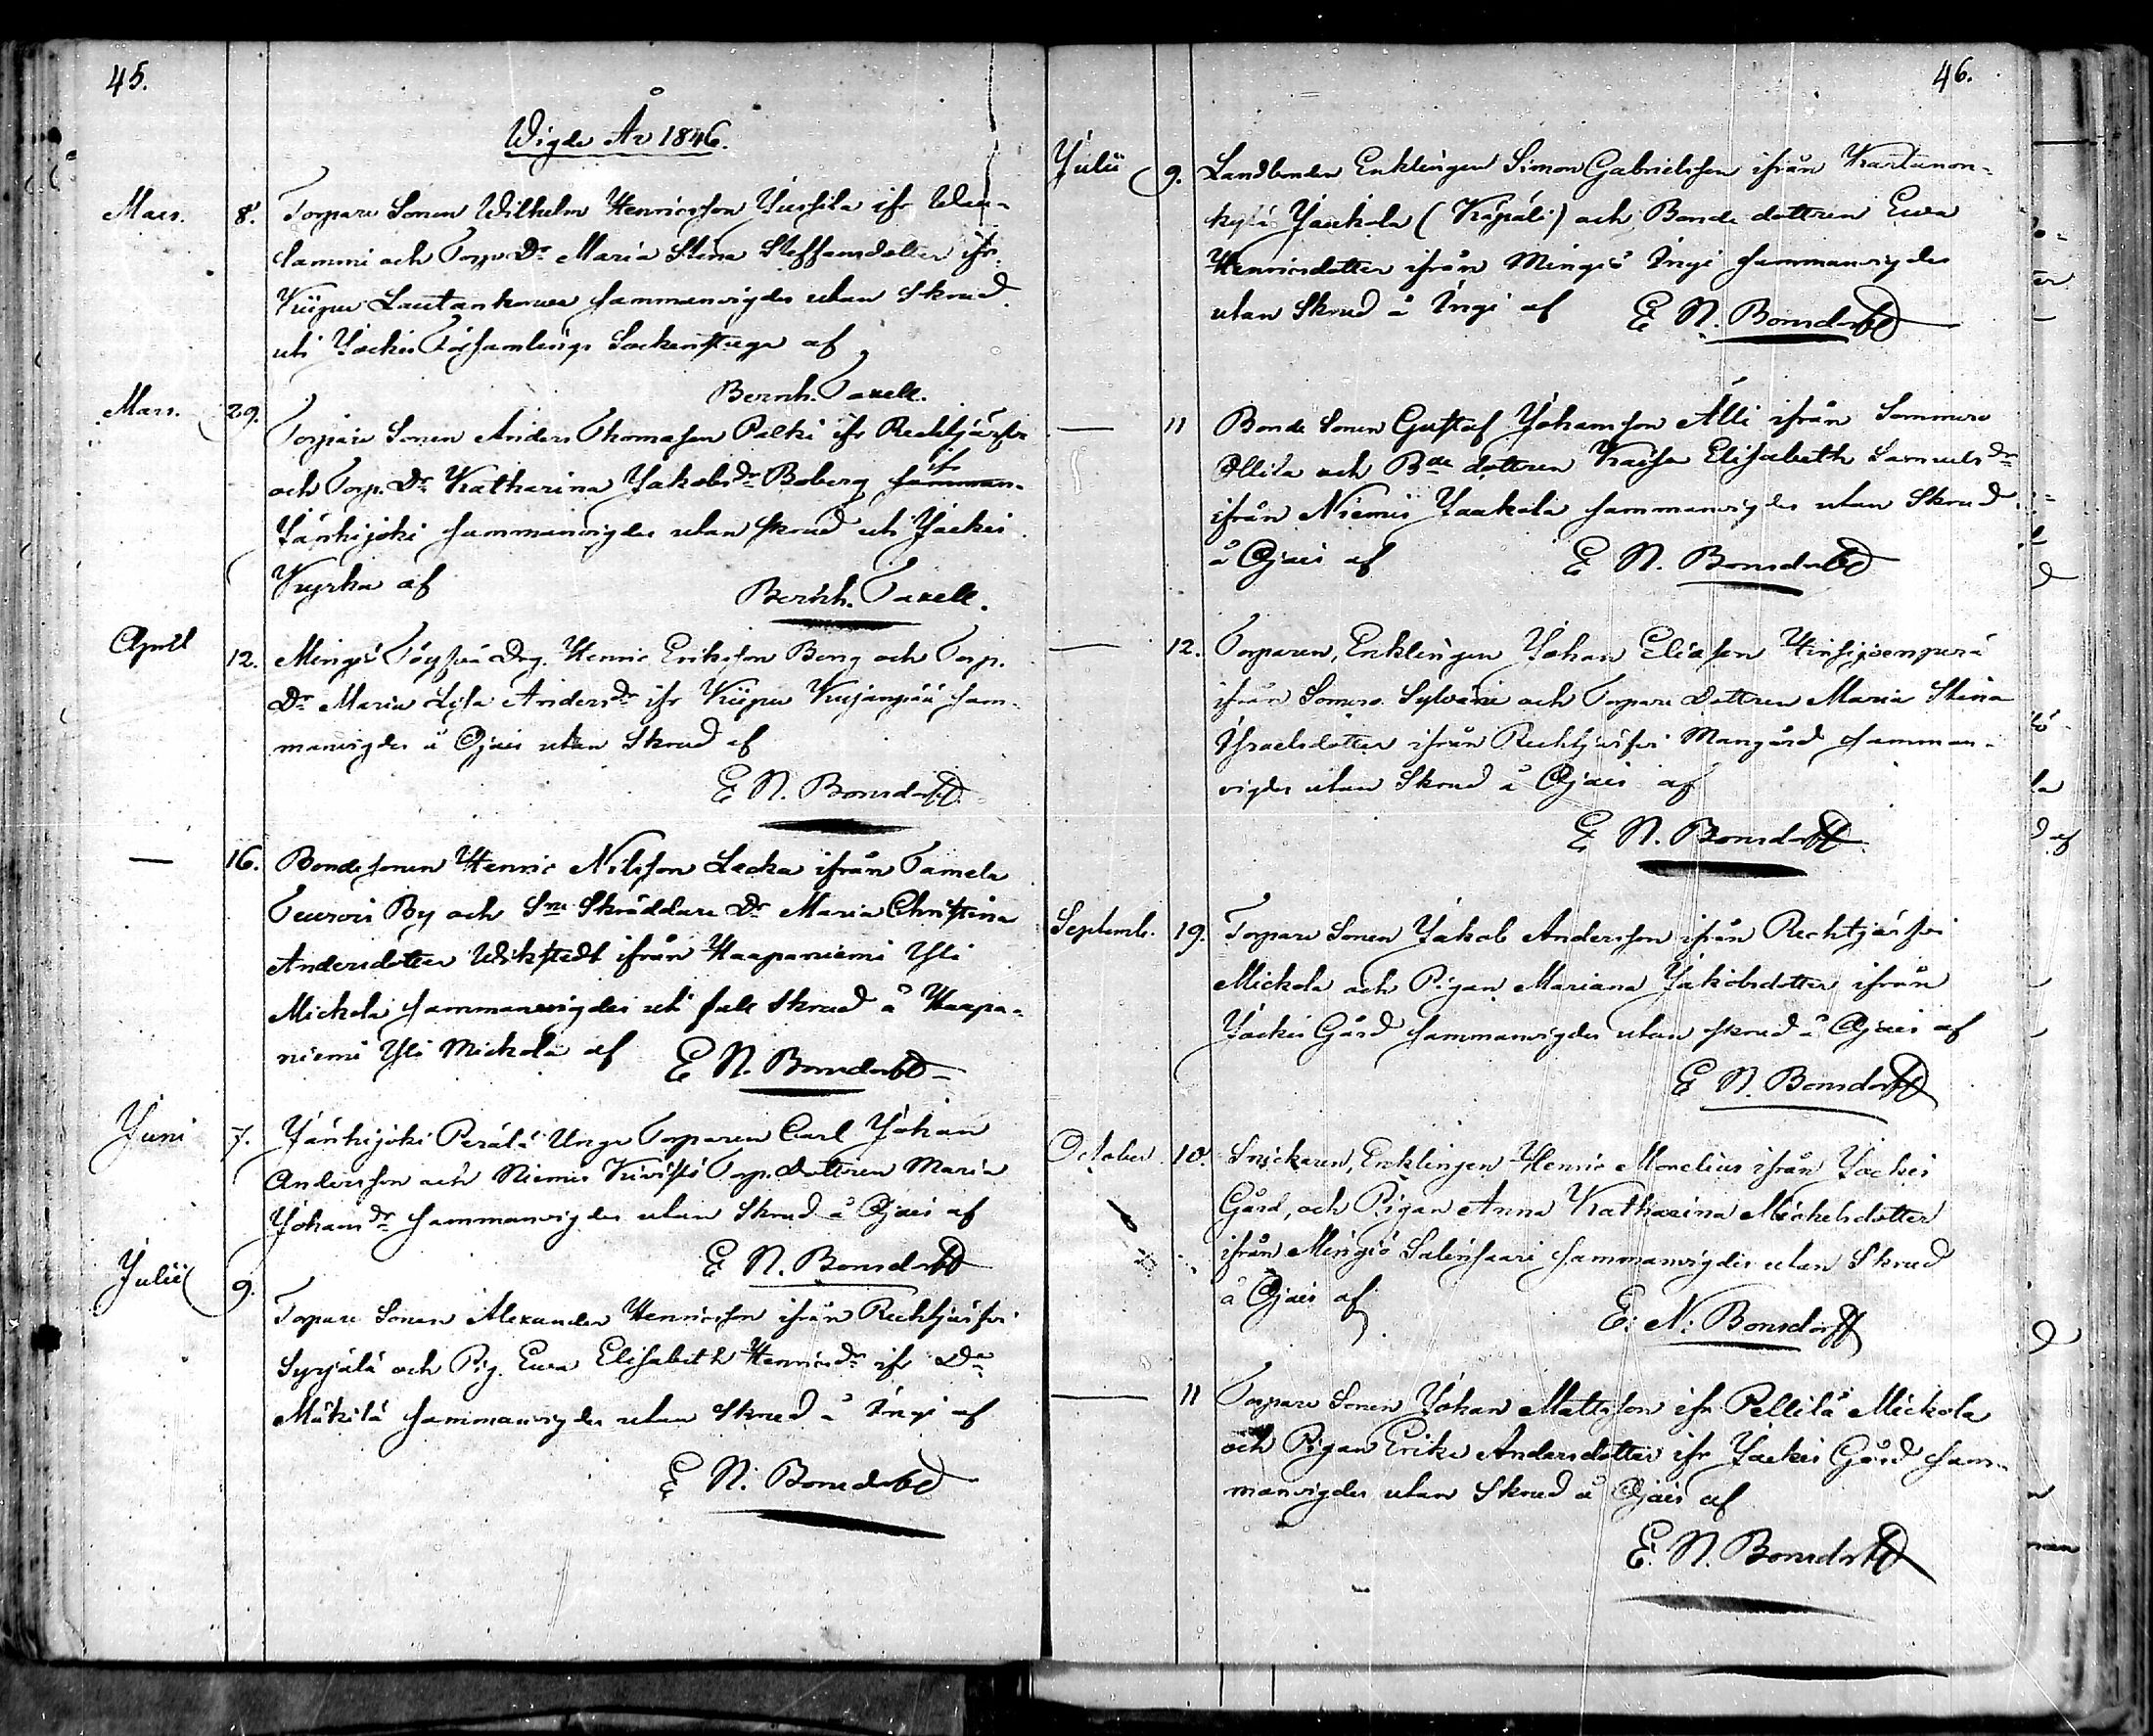 45.
Wigde År 1846.
Mars. 8. Torpare Sonen Wilhelm Henricsson Jussila ifr
lammi och Torp. Dr Maria Stina Steffansdotter ifr.
Kiipu Lautankorwa sammanvigdes utan Skrud
uti Jockis Församlings Sockenstuga af
Bernh. Taxell.
Mars. 29. Torpare Sonen Anders Thomasson Palki ifr Rechtjärfvi
ifr
och Torp. Dr Katharina Jakobsdr Boberg samman-
Jänhijoki sammanvigdes utan skrud uti Jockis
Kyrka af Bernh. Taxell.
April 12. Mingiö Drg. Henric Eriksson Berg och Torp.
Dr Maria Lisa Andersdr ifr Kiipu Kujanpää sam-
manvigdes å Ojais utan Skrud af
E N. Bonsdorff
— 16. Bondesonen Henric Nilsson Lecka ifrån Tamela
Teurois By och Skräddare Dr Maria Christina
Andersdotter Wikstedt ifrån Haapaniemi Yli
Mickola sammanvigdes uti full Skrud å Haapa-
niemi Yli Mickola af E N. Bonsdorff
Juni 7. Jänhijoki Perälä Unge Torparen Carl Johan
Andersson och Niemis Kivistö Torp. Dottren Maria
Johansdr sammanvigdes utan Skrud å Ojais af
E N. Bonsdorff
Julii 9. Torpare Sonen Alexander Henricsson ifrån Rechtjärfvi
Syrjälä och Pig. Ewa Elisabeth Henricsdr ifr Do
Mäkilä sammanvigdes utan Skrud å Ingi af
E N. Bonsdorff
46.
Julii 9. Landbonden Enklingen Simon Gabrielsson ifrån Kartanon-
kylä Jaakola (Käpäli) och Bonde dottren Ewa
Henricsdotter ifrån Mingiö Ingi sammanvigdes
utan Skrud å Ingi af E N. Bonsdorff
— 11 Bonde Sonen Gustaf Johansson Älli ifrån Sommero
Ollila och Bde dottren Kajsa Elisabeth Samuelsdr
ifrån Niemis Jaakola sammanvigdes utan Skrud
å Ojais af E N. Bonsdorff
— 12. Torparen, Enklingen Johan Eliasson Hirsijoenperä
ifrån Somero Sylvänä och Torpare Dottren Maria Stina
Israelsdotter ifrån Rechtjärfvi Mangård samman-
vigdes utan Skrud å Ojais af
E N. Bonsdorff
Septemb. 19. Torpare Sonen Jakob Andersson ifrån Rechtjärfvi
Mickola och Pigan Mariana Jakobsdotter ifrån
Jockis Gård sammanvigdes utan skrud å Ojais af
E N. Bonsdorff
October 10. Snickaren, Enklingen Henric Monelius ifrån Jockis
Gård, och Pigan Anna Katharina Mickelsdotter
ifrån Mingiö Salinsaari sammanvigdes utan Skrud
å Ojais af E: N: Bonsdorff
— 11 Torpare Sonen Johan Mattsson ifr Pellilä Mickola
och Pigan Erika Andersdotter ifr Jockis Gård sam-
manvigdes utan Skrud å Ojais af
E. N. Bonsdorff